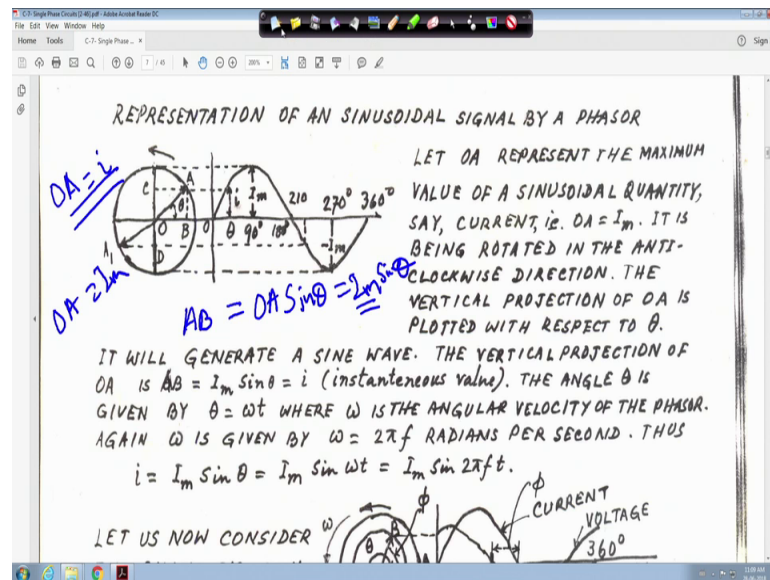 C-7- Single Phase Circuits [2-46].pdf - Adobe Acrobat Reader DC
File Edit View Window Help
Home Tools C-7- Single Phase ... × Sign
7 / 45 200%
REPRESENTATION OF AN SINUSOIDAL SIGNAL BY A PHASOR
OA = i
OA = Im
C A θ O B D A1
O i Im θ 90° 180° 210 270° 360° -Im
AB = OA Sinθ = Im Sinθ
LET OA REPRESENT THE MAXIMUM
VALUE OF A SINUSOIDAL QUANTITY,
SAY, CURRENT, ie. OA = Im. IT IS
BEING ROTATED IN THE ANTI-
CLOCKWISE DIRECTION. THE
VERTICAL PROJECTION OF OA IS
PLOTTED WITH RESPECT TO θ.
IT WILL GENERATE A SINE WAVE. THE VERTICAL PROJECTION OF
OA IS AB = Im Sin θ = i (instanteneous value). THE ANGLE θ IS
GIVEN BY θ = ωt WHERE ω IS THE ANGULAR VELOCITY OF THE PHASOR.
AGAIN ω IS GIVEN BY ω = 2πf RADIANS PER SECOND. THUS
i = Im Sin θ = Im Sin ωt = Im Sin 2πft.
LET US NOW CONSIDER
ω ϕ θ B A ϕ CURRENT VOLTAGE 360°
11:09 AM